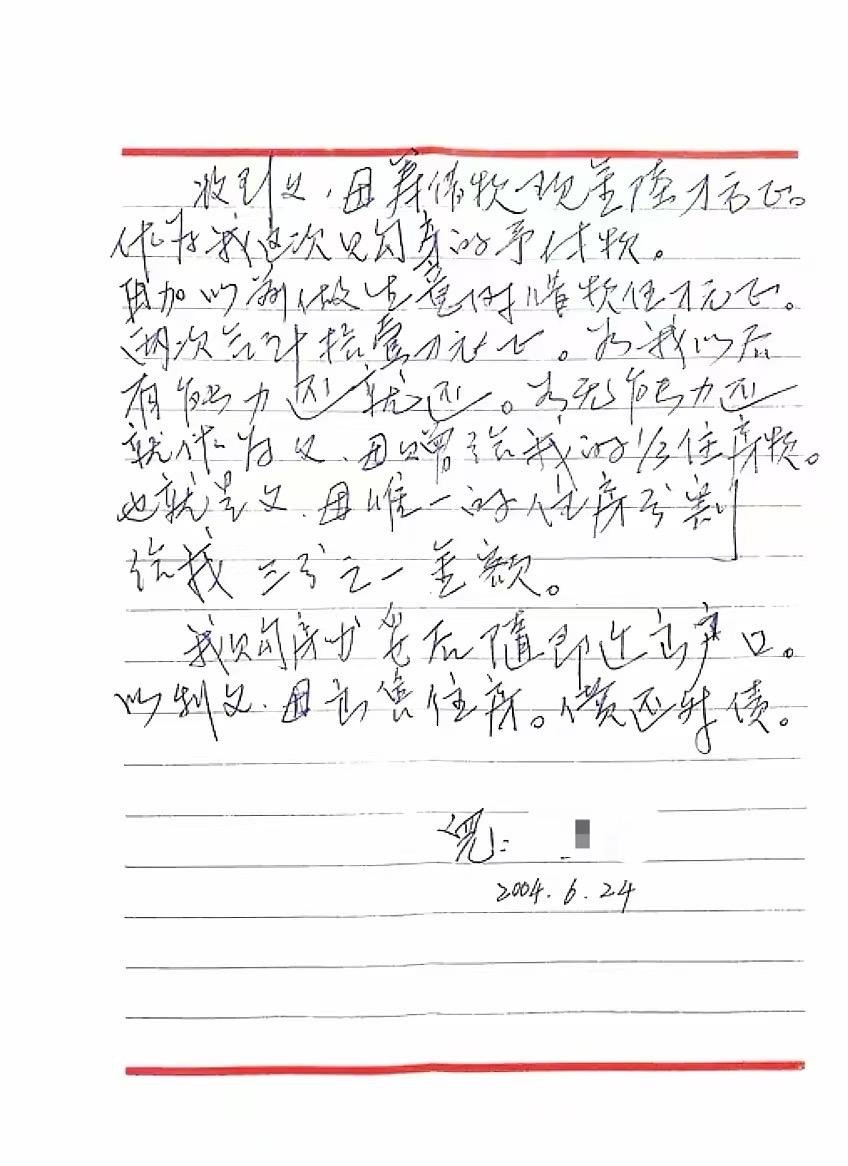 收到父、母筹借款现金陆万元正。
作为我这次购房的予付款。
且加以前做生意时借款伍万元正。
两次合计拾壹万元正。为我以后
有能力还就还。为无能力还
就作为父、母赠给我的1/3住房款。
也就是父、母唯一的住房分割
给我三分之一金额。
我购房出卷后随即迁出户口。
以利父、母出售住房。偿还外债。
2004.6.24